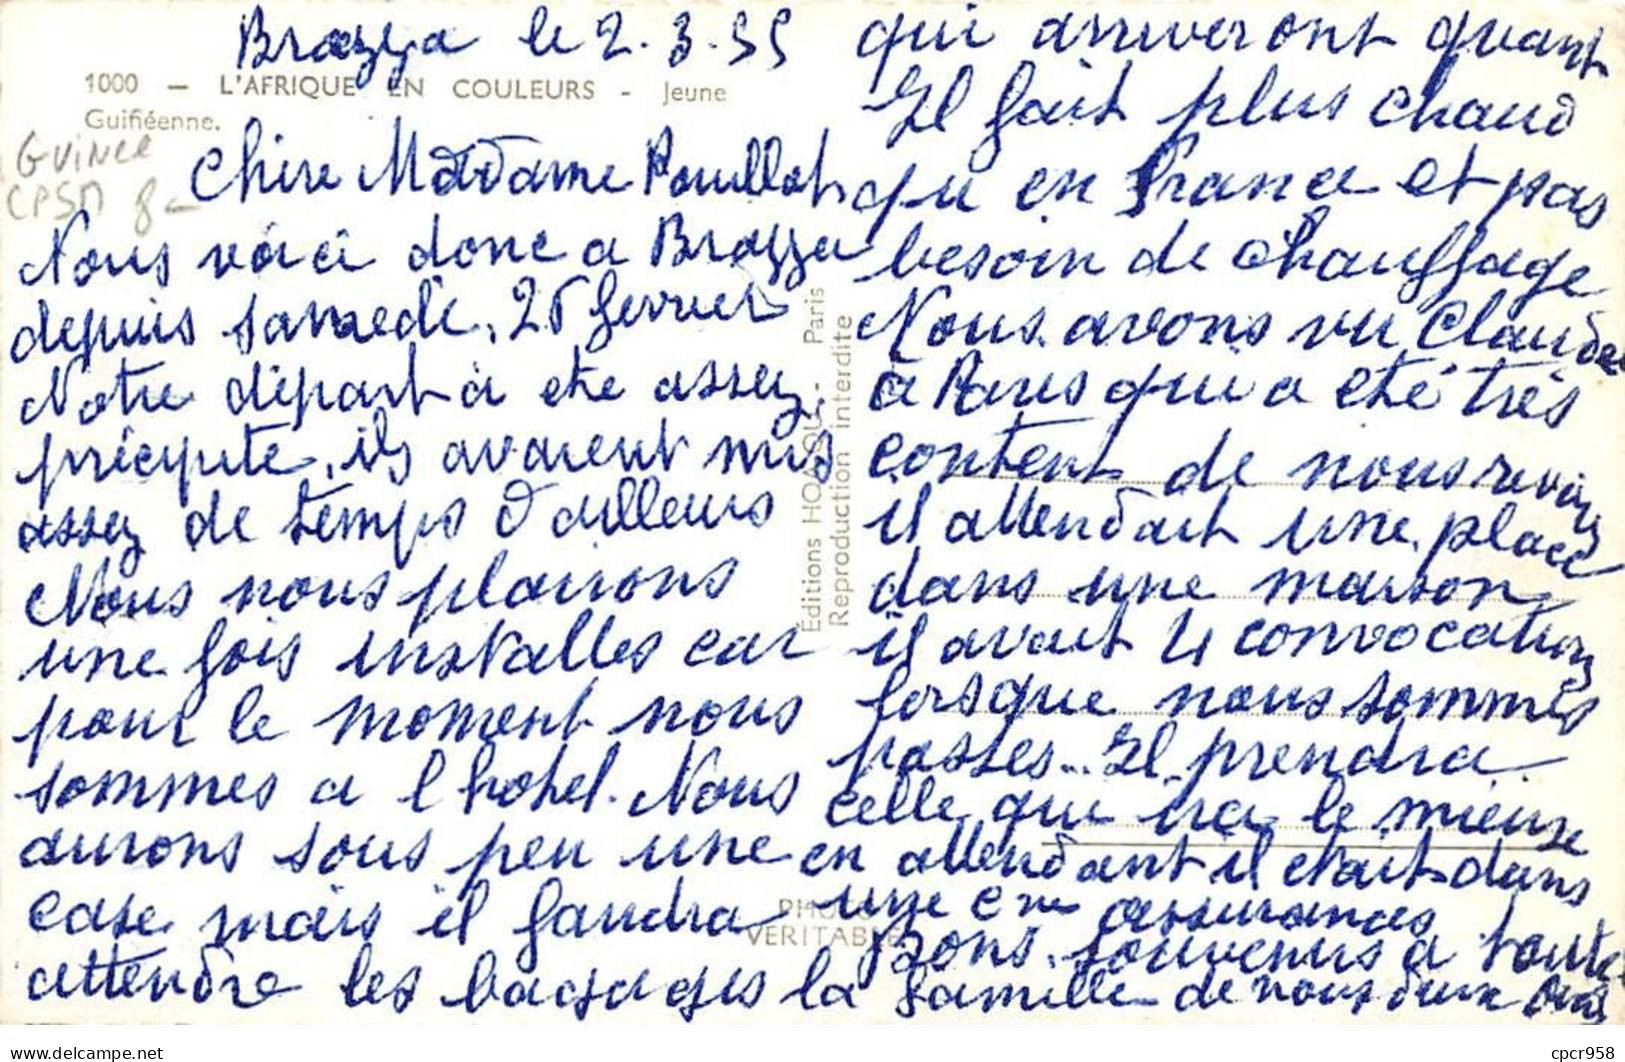 Brazza le 2.3.55
1000 — L'AFRIQUE EN COULEURS - Jeune
Guinéenne.
GUINEE
CPSM 8-
Chère Madame Pouillot
Nous voici donc a Brazza
depuis samedi, 26 fevrier
Notre départ a ete assez
précipité, ils avaient mis
assez de temps d'ailleurs
Nous nous plairons
une fois installes car
pour le moment nous
sommes a l hotel. Nous
aurons sous peu une
case mais il faudra
attendre les bagages la
qui arriveront quant
Il fait plus chaud
qu en France et pas
besoin de chauffage
Nous avons vu Claude
à Paris qui a été très
content de nous revoir
il attendait une place
dans une maison
il avait 4 convocations
lorsque nous sommes
passes.. Il prendra
celle qui ira le mieux
en attendant il etait dans
une Cie assurances
Bons souvenirs a toute
famille de nous deux
Éditions HOA-QUI - Paris
Reproduction interdite
PHOTO
VERITABLE
cpcr958